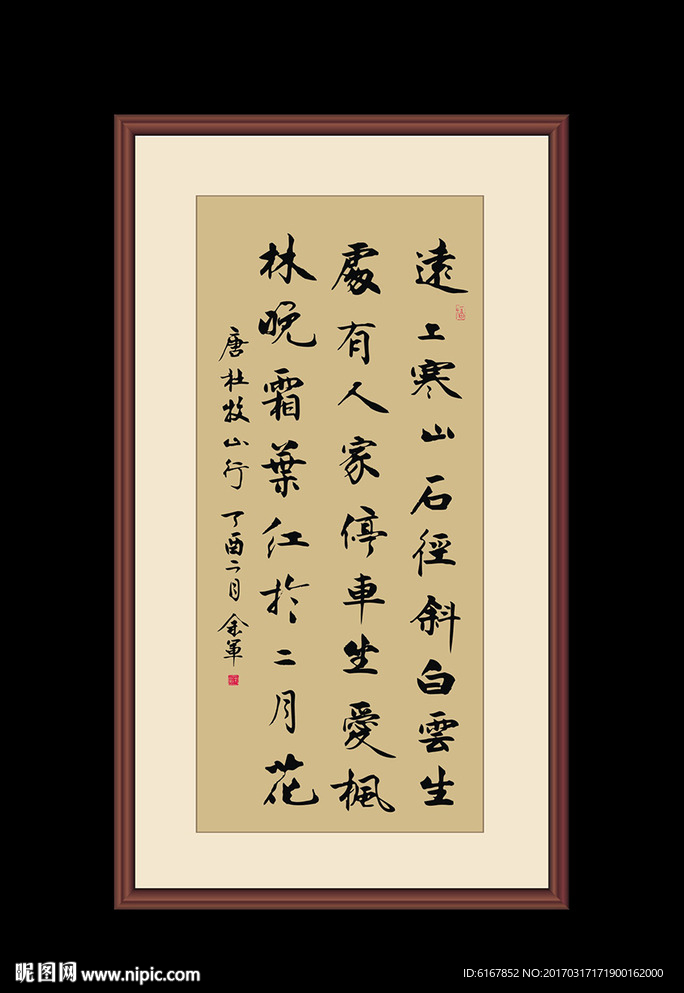 遠上寒山石徑斜白雲生
處有人家停車坐愛楓
林晚霜葉红於二月花
唐杜牧山行 丁酉二月 余軍
昵图网 www.nipic.com
ID:6167852 NO:20170317171900162000